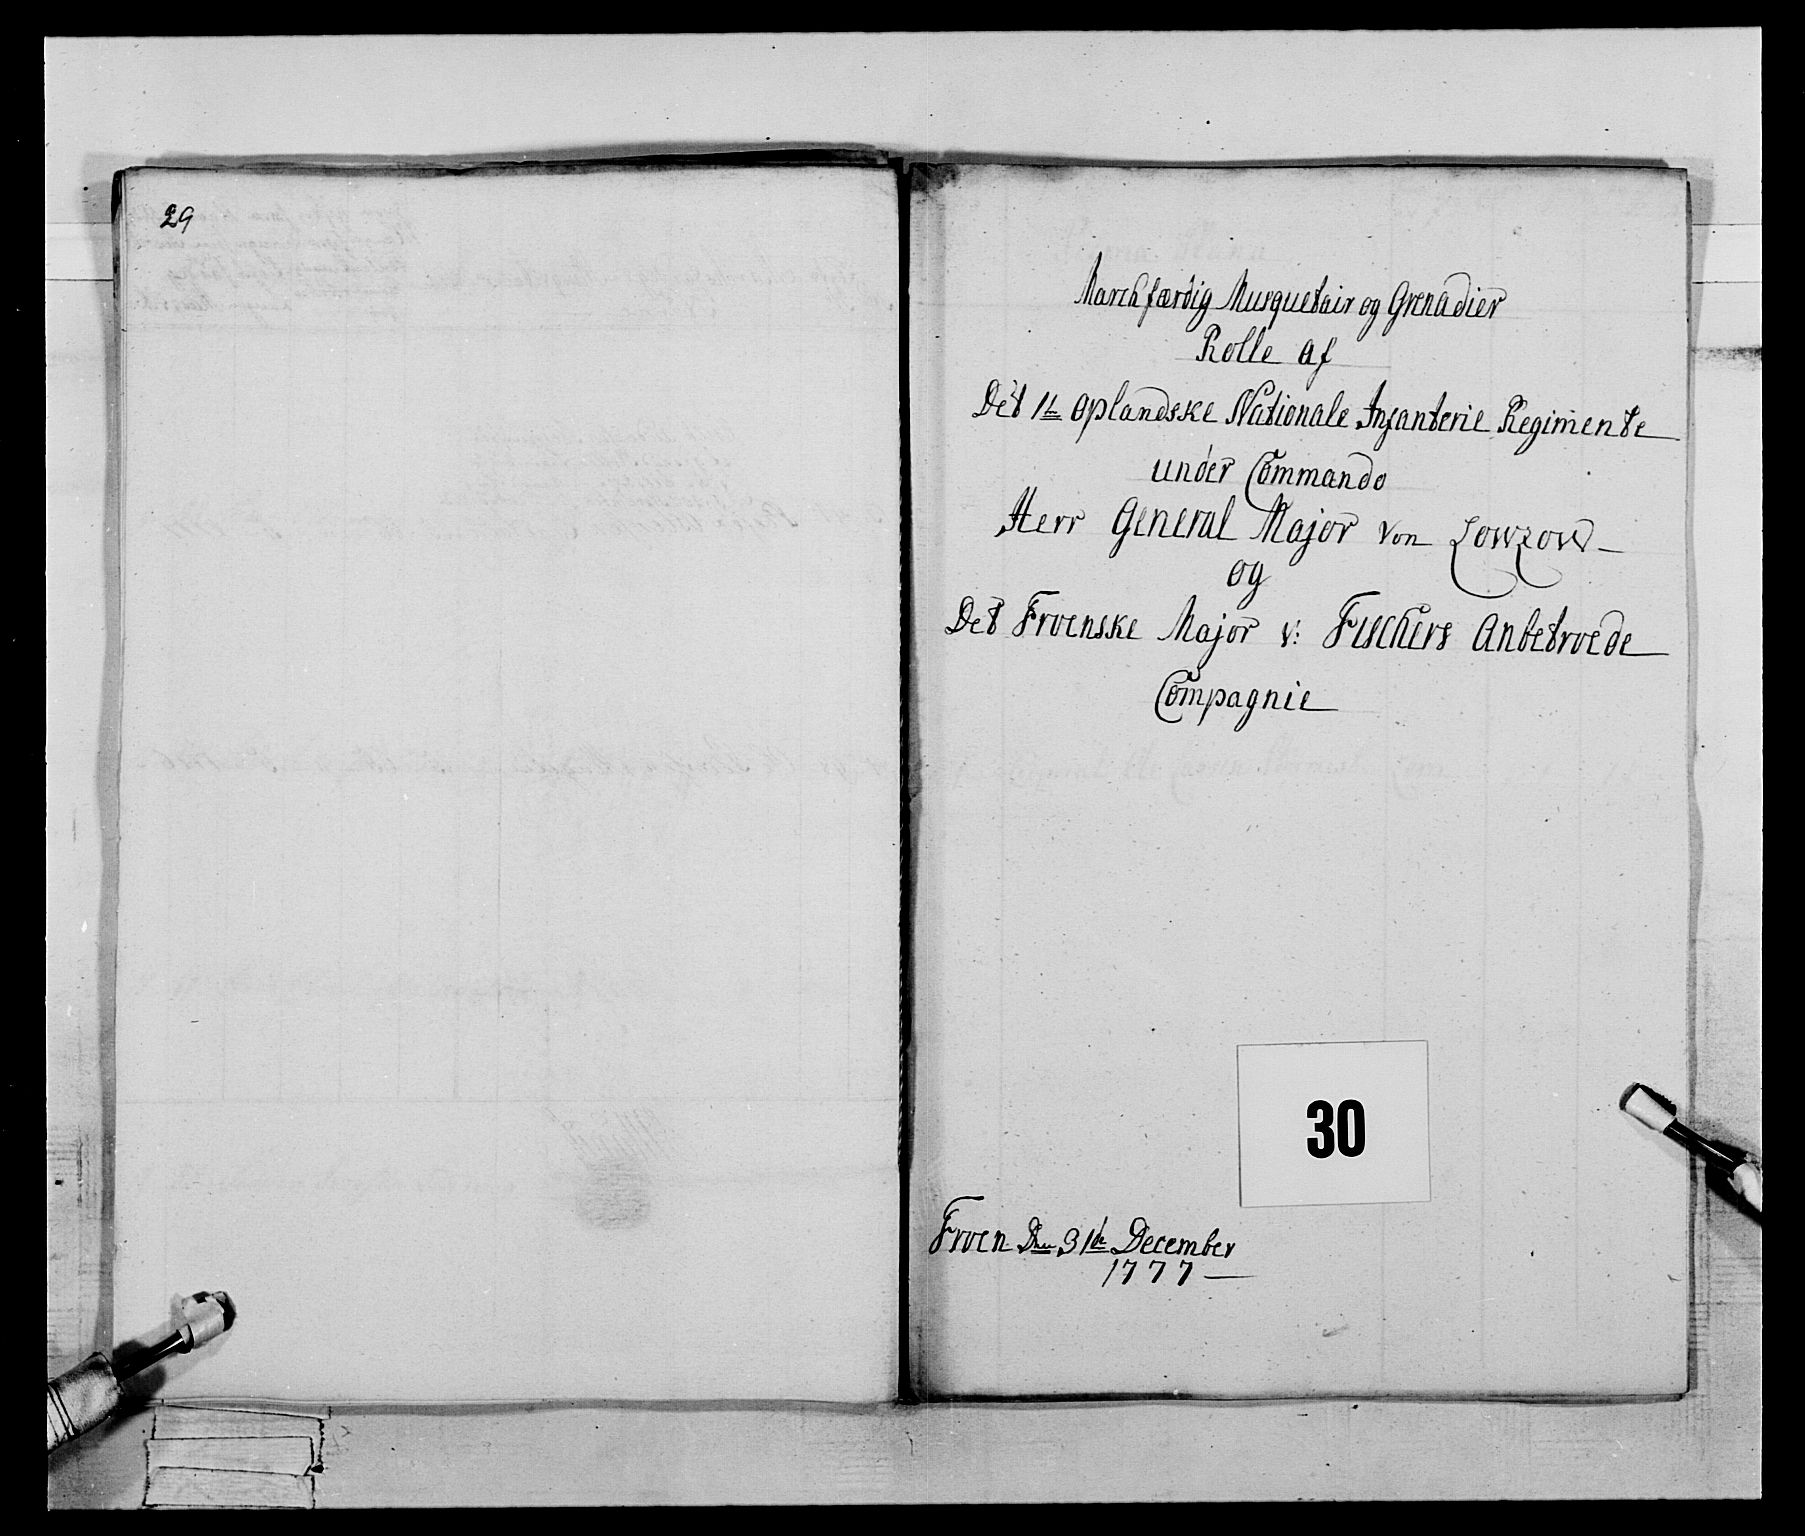 29
March færdig Musquetair og Grenadier
Rolle af
Det 1te Oplandske Nationale Infanterie Regimente
under Commando
Herr General Major von Lowzow
og
Det Froenske Major v: Fischers Anbetroede
Compagnie
30
Froen Den 31te December
1777